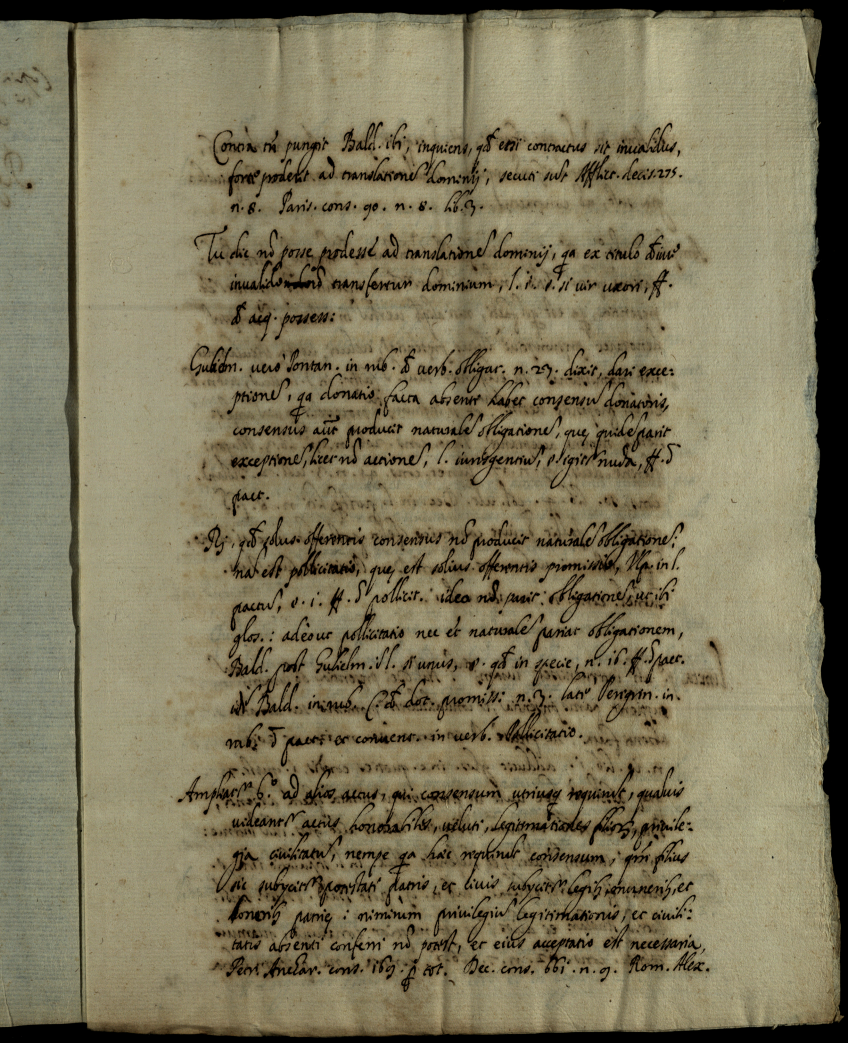 Contra tñ pungit Bald. ibi, inquiens, qd etsi contractus sit inualidus,
forte prodest ad translatione dominij, secuti sũt Afflict. decis. 275.
n. 8. Paris. cons. 90. n. 8. lib. 3.
Tu dic nõ posse prodesse ad translatione dominij, qa ex titulo
inualido transfertur dominium, l. §. si uir uxori, ff.
d acq. possess:
Gulielm. uero Pontan. in rub. d uerb. obligat. n. 27. dixit, dari exce:
ptione, qa donatio facta absenti habet consensũ donatoris,
consensus aũt producit naturale obligatione, quę quide parit
exceptione, licet nõ actione, l. iurisgentiũ, §. igitur nuda, ff. d
pact.
R, qd solus offerentis consensus nõ producit naturale obligatione;
nã est pollicitatio, quę est solius offerentis promissio, Ulp. in l.
pactũ, §. i. ff. d pollicit. ideo nõ parit obligatione, ut ibi
glos.: adeout pollicitatio nec et naturale pariat obligationem,
Bald. post Gulielm. ĩ l. si unus, §. qd in specie, n. 16. ff. d pact.
Bald. in rub. C. d dot. promiss. n. 3. late Peregrin. in
rub. d pact. et conuent. in uerb. Pollicitatio.
Ampliatr 6.º ad alios actus, qui consensum utriusq requirũt, quãuis
uideantr actus honorabiles, ueluti, legitimationes filior, priuile:
gia ciuilitatũ, nempe qa hæc requirũt consensum, filius
sic subijcitr potestati patris, et ciuis subijcitr legib, muneríb, et
honorib patrię: nimirum priuilegiũ legitimationis, et ciuili:
tatis absenti conferri nõ potest, et eius acceptatio est necessaria,
Petr. Anchar. cons. 169. p tot. Dec. cons. 661. n. 9. Rom. Alex.